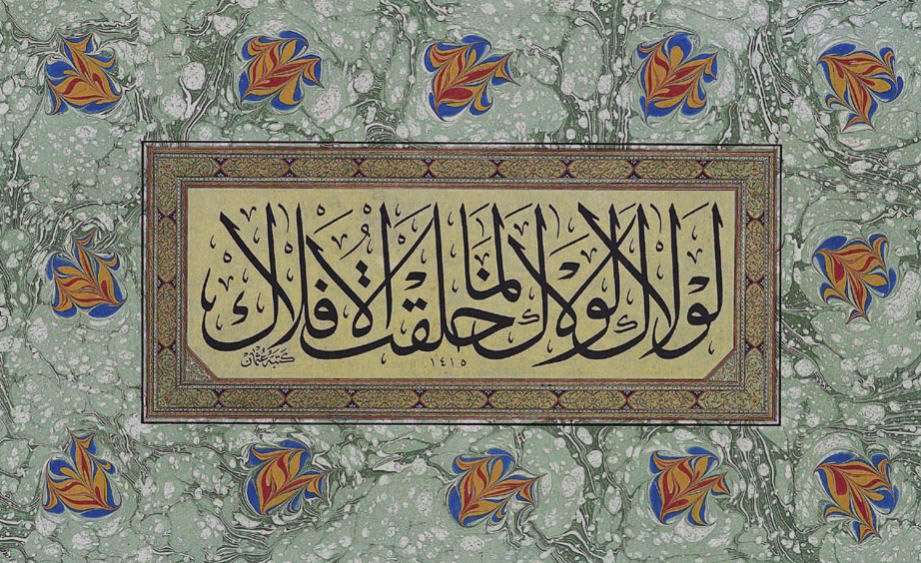 لَوْلَاكَ لَوْلَاكَ لَمَا خَلَقْتُ الْأَفْلَاكَ
كتبه عثمان
١٤١٥